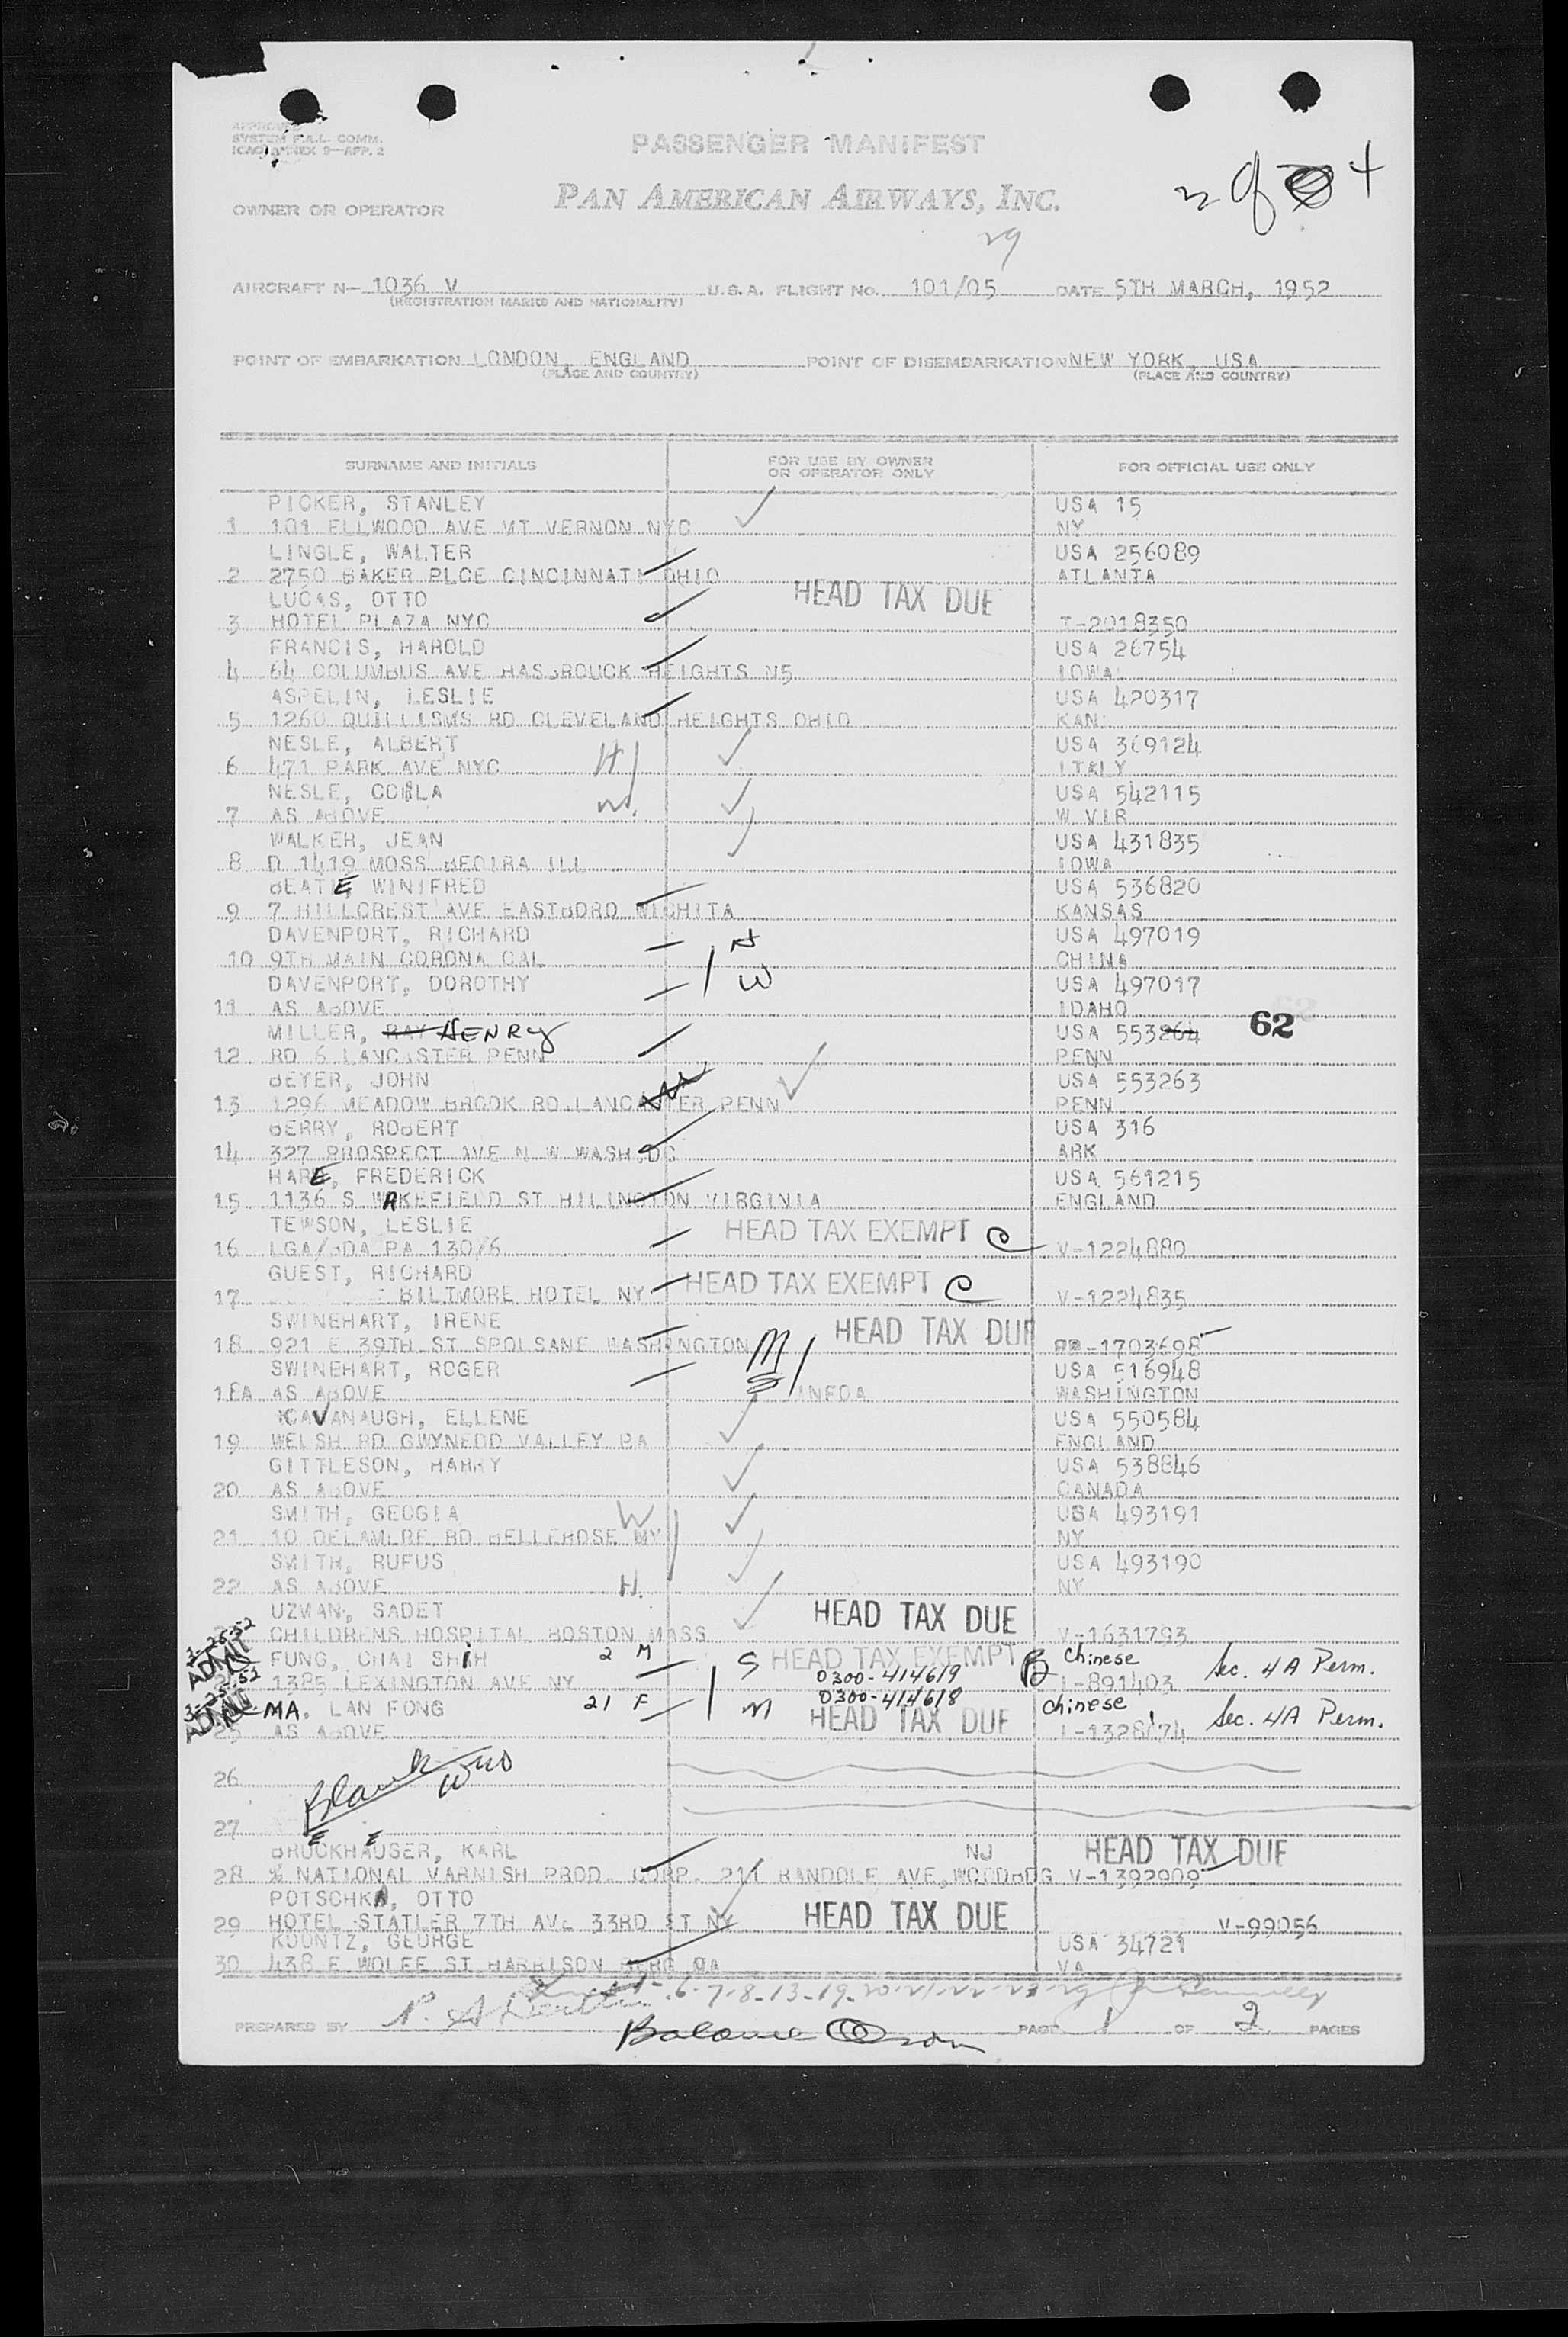 APPROVED
SYSTEM F.A.L. COMM.
ICAO ANNEX 9—APP. 2
PASSENGER MANIFEST
2 of 4
OWNER OR OPERATOR
PAN AMERICAN AIRWAYS, INC.
29
AIRCRAFT N— 1036 V U.S.A. FLIGHT No. 101/05 DATE 5TH MARCH, 1952
(REGISTRATION MARKS AND NATIONALITY)
POINT OF EMBARKATION LONDON, ENGLAND POINT OF DISEMBARKATION NEW YORK, USA
(PLACE AND COUNTRY) (PLACE AND COUNTRY)
SURNAME AND INITIALS FOR USE BY OWNER OR OPERATOR ONLY FOR OFFICIAL USE ONLY
PICKER, STANLEY USA 15
1 101 ELLWOOD AVE MT VERNON NYC NY
LINGLE, WALTER USA 256089
2 2750 BAKER PLCE CINCINNATI OHIO ATLANTA
LUCAS, OTTO HEAD TAX DUE
3 HOTEL PLAZA NYC T-2018350
FRANCIS, HAROLD USA 26754
4 64 COLUMBUS AVE HASBROUCK HEIGHTS N5 IOWA
ASPELIN, LESLIE USA 420317
5 1260 RD CLEVELAND HEIGHTS OHIO KAN
NESLE, ALBERT H USA 369124
6 471 PARK AVE NYC ITALY
NESLE, W. USA 542115
7 AS ABOVE W VIR
WALKER, JEAN USA 431835
8 D 1419 MOSS ILL IOWA
BEATE WINIFRED USA 536820
9 7 HILLCREST AVE EASTBORO WICHITA KANSAS
DAVENPORT, RICHARD H USA 497019
10 9TH MAIN CORONA CAL W CHINA
DAVENPORT, DOROTHY USA 497017
11 AS ABOVE IDAHO
MILLER, RAY HENRY USA 553264 62
12 RD 6 LANCASTER PENN PENN
BEYER, JOHN USA 553263
13 1296 MEADOW BROOK RD LANCASTER PENN PENN
BERRY, ROBERT USA 316
14 327 PROSPECT AVE N W WASH DC ARK
HARE, FREDERICK USA 561215
15 1136 S WAKEFIELD ST HILINGTON VIRGINIA ENGLAND
TEWSON, LESLIE HEAD TAX EXEMPT C
16 LGA/BDA PA 130/6 V-1224880
GUEST, RICHARD HEAD TAX EXEMPT C
17 BILTMORE HOTEL NY V-1224835
SWINEHART, IRENE HEAD TAX DUE
18 921 E 39TH ST SPOLSANE WASHINGTON M RP-1703698
SWINEHART, ROGER S USA 516948
18A AS ABOVE INFOA WASHINGTON
CAVANAUGH, ELLENE USA 550584
19 WELSH RD GWYNEDD VALLEY PA ENGLAND
GITTLESON, HARRY USA 538846
20 AS ABOVE CANADA
SMITH, GEOGIA W USA 493191
21 10 DELAMERE RD BELLEROSE NY NY
SMITH, RUFUS USA 493190
22 AS ABOVE H. NY
UZMAN, SADET HEAD TAX DUE
CHILDRENS HOSPITAL BOSTON MASS V-1631793
3-25-52 ADMIT FUNG, CHAI SHIH 2 M S HEAD TAX EXEMPT B Chinese
1385 LEXINGTON AVE NY 0300-414619 I-891403 Sec. 4A Perm.
3-25-52 ADMIT MA, LAN FONG 21 F M 0300-414618 Chinese
25 AS ABOVE HEAD TAX DUE Sec. 4A Perm.
26 Blank
27
BRUCKHAUSER, KARL E E NJ HEAD TAX DUE
28 % NATIONAL VARNISH PROD. CORP. 211 RANDOLF AVE, WOODBDG V-1392909
POTSCHKA, OTTO
29 HOTEL STATLER 7TH AVE 33RD ST NY HEAD TAX DUE V-99056
KOONTZ, GEORGE USA 34721
30 438 E WOLFE ST HARRISON BERG VA VA
1-6-7-8-13-19-20-21-22-23-29
PREPARED BY PAGE 1 OF 2 PAGES
Balance Olson